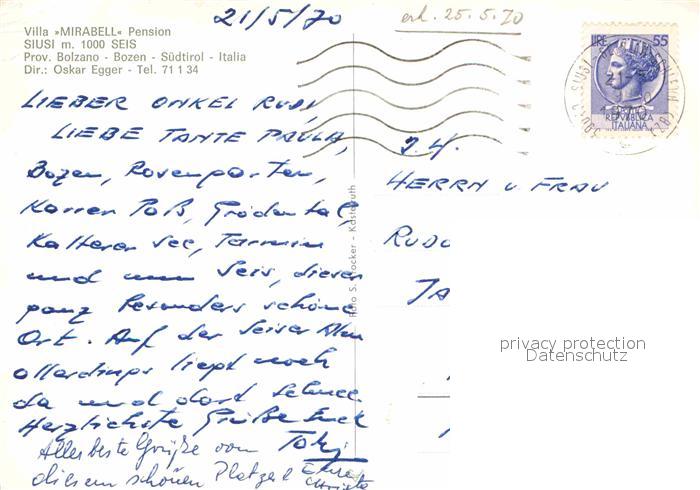 21/5/70
erh. 25.5.70
Villa »MIRABELL« Pension
SIUSI m. 1000 SEIS
Prov. Bolzano - Bozen - Südtirol - Italia
Dir.: Oskar Egger - Tel. 71 1 34
LIRE 55
REPVBBLICA
ITALIANA
LIEBER ONKEL RUDI,
LIEBE TANTE PAULA,
Bozen, Rosengarten,
Karrer Paß, Grödental,
Kalterer See, Tramin
und nun Seis, dieser
ganz besonders schöne
Ort. Auf der Seiser Alm
allerdings liegt noch
da und dort Schnee.
Herzlichste Grüße Euch
Allerbeste Grüße von
diesem schönen Platzerl
HERRN u FRAU
RUDO
Foto S. Trocker - Kastelruth
privacy protection
Datenschutz